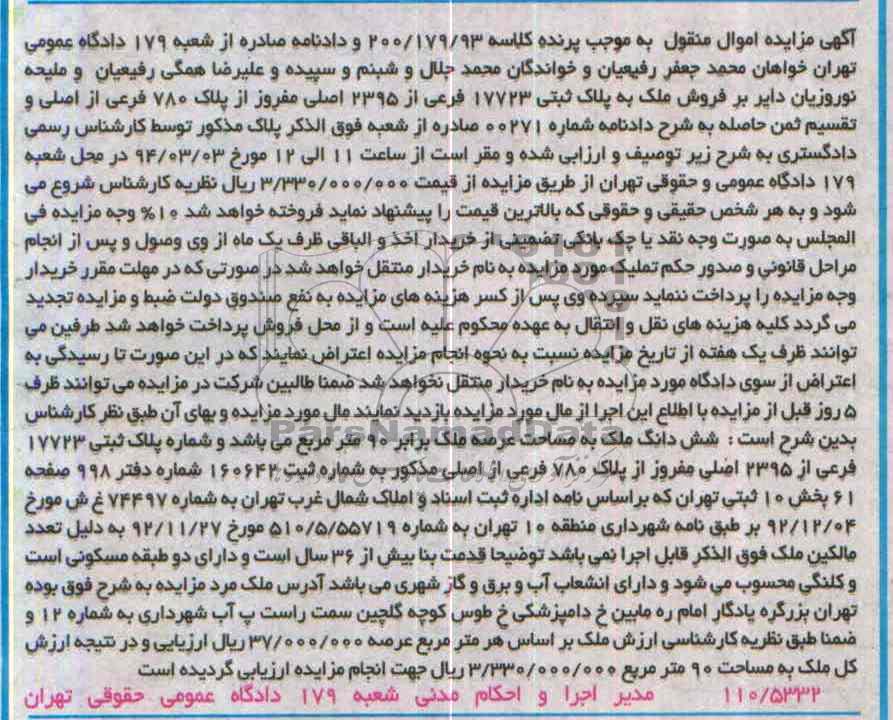 آگهی مزایده اموال منقول به موجب پرونده کلاسه ۲۰۰/۱۷۹/۹۳ و دادنامه صادره از شعبه ۱۷۹ دادگاه عمومی
تهران خواهان محمد جعفر رفیعیان و خواندگان محمد جلال و شبنم و سپیده و علیرضا همگی رفیعیان و ملیحه
نوروزیان دایر بر فروش ملک به پلاک ثبتی ۱۷۷۲۳ فرعی از ۲۳۹۵ اصلی مفروز از پلاک ۷۸۰ فرعی از اصلی و
تقسیم ثمن حاصله به شرح دادنامه شماره ۰۰۲۷۱ صادره از شعبه فوق الذکر پلاک مذکور توسط کارشناس رسمی
دادگستری به شرح زیر توصیف و ارزابی شده و مقر است از ساعت ۱۱ الی ۱۲ مورخ ۹۴/۰۳/۰۳ در محل شعبه
۱۷۹ دادگاه عمومی و حقوقی تهران از طریق مزایده از قیمت ۳/۳۳۰/۰۰۰/۰۰۰ ریال نظریه کارشناس شروع می
شود و به هر شخص حقیقی و حقوقی که بالاترین قیمت را پیشنهاد نماید فروخته خواهد شد ۱۰% وجه مزایده فی
المجلس به صورت وجه نقد یا چک بانکی تضمینی از خریدار اخذ و الباقی ظرف یک ماه از وی وصول و پس از انجام
مراحل قانونی و صدور حکم تملیک مورد مزایده به نام خریدار منتقل خواهد شد در صورتی که در مهلت مقرر خریدار
وجه مزایده را پرداخت ننماید سپرده وی پس از کسر هزینه های مزایده به نفع صندوق دولت ضبط و مزایده تجدید
می گردد کلیه هزینه های نقل و انتقال به عهده محکوم علیه است و از محل فروش پرداخت خواهد شد طرفین می
توانند ظرف یک هفته از تاریخ مزایده نسبت به نحوه انجام مزایده اعتراض نمایند که در این صورت تا رسیدگی به
اعتراض از سوی دادگاه مورد مزایده به نام خریدار منتقل نخواهد شد ضمنا طالبین شرکت در مزایده می توانند ظرف
۵ روز قبل از مزایده با اطلاع این اجرا از مال مورد مزایده بازدید نمایند مال مورد مزایده و بهای آن طبق نظر کارشناس
بدین شرح است : شش دانگ ملک به مساحت عرصه ملک برابر ۹۰ متر مربع می باشد و شماره پلاک ثبتی ۱۷۷۲۳
فرعی از ۲۳۹۵ اصلی مفروز از پلاک ۷۸۰ فرعی از اصلی مذکور به شماره ثبت ۱۶۰۶۴۲ شماره دفتر ۹۹۸ صفحه
۶۱ بخش ۱۰ ثبتی تهران که براساس نامه اداره ثبت اسناد و املاک شمال غرب تهران به شماره ۷۴۴۹۷ غ ش مورخ
۹۲/۱۲/۰۴ بر طبق نامه شهرداری منطقه ۱۰ تهران به شماره ۵۱۰/۵/۵۵۷۱۹ مورخ ۹۲/۱۱/۲۷ به دلیل تعدد
مالکین ملک فوق الذکر قابل اجرا نمی باشد توضیحا قدمت بنا بیش از ۳۶ سال است و دارای دو طبقه مسکونی است
و کلنگی محسوب می شود و دارای انشعاب آب و برق و گاز شهری می باشد آدرس ملک مرد مزایده به شرح فوق بوده
تهران بزرگره یادگار امام ره مابین خ دامپزشکی خ طوس کوچه گلچین سمت راست پ آب شهرداری به شماره ۱۲ و
ضمنا طبق نظریه کارشناسی ارزش ملک بر اساس هر متر مربع عرصه ۳۷/۰۰۰/۰۰۰ ریال ارزیابی و در نتیجه ارزش
کل ملک به مساحت ۹۰ متر مربع ۳/۳۳۰/۰۰۰/۰۰۰ ریال جهت انجام مزایده ارزیابی گردیده است
۱۱۰/۵۳۳۲ مدیر اجرا و احکام مدنی شعبه ۱۷۹ دادگاه عمومی حقوقی تهران
ParsNamadData